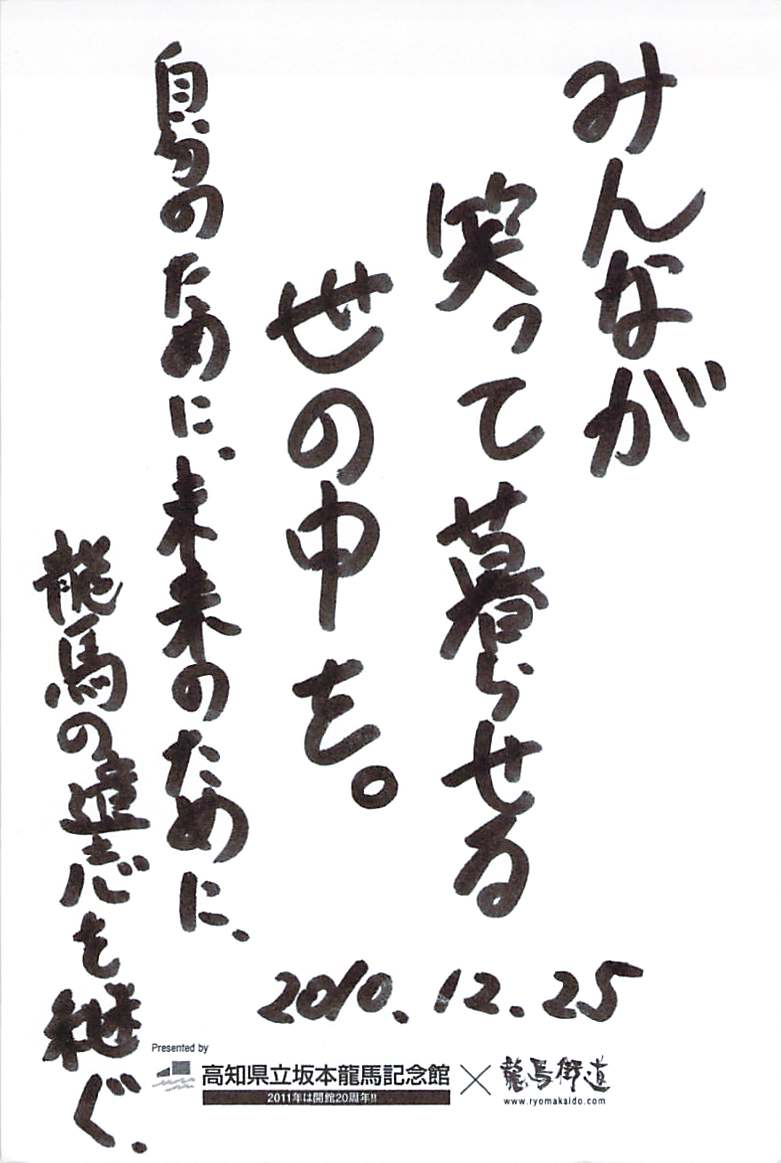 みんなが
笑って暮らせる
世の中を。
自分のために、未来のために、
龍馬の遺志を継ぐ、
2010.12.25
Presented by
高知県立坂本龍馬記念館
2011年は開館20周年!!
×
龍馬街道
www.ryomakaido.com